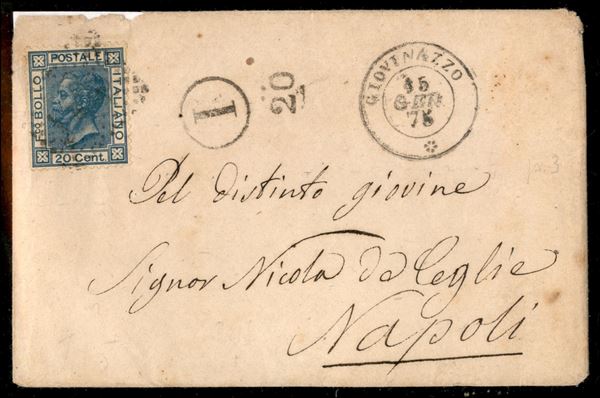 POSTALE
Fco BOLLO
ITALIANO
20 Cent.
I
20
GIOVINAZZO
15
GEN
75
Pel distinto giovine
Signor Nicola de Ceglie
Napoli